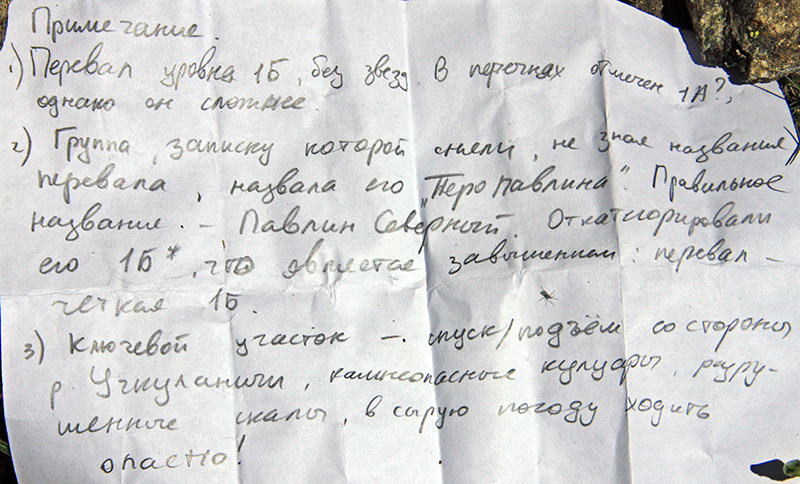 Примечание.
1) Перевал уровня 1Б, без звезд. В перечнях отмечен 1А?,
однако он сложнее.
2) Группа, записку которой сняли, не зная названия
перевала, назвала его "Перо павлина". Правильное
название - Павлин Северный. Откатигорировали
его 1Б*, что является завышением: перевал -
четкая 1Б.
3) Ключевой участок - спуск/подъём со стороны
р. Учкуланичи, камнеопасные кулуары, разру-
шенные скалы, в сырую погоду ходить
опасно!